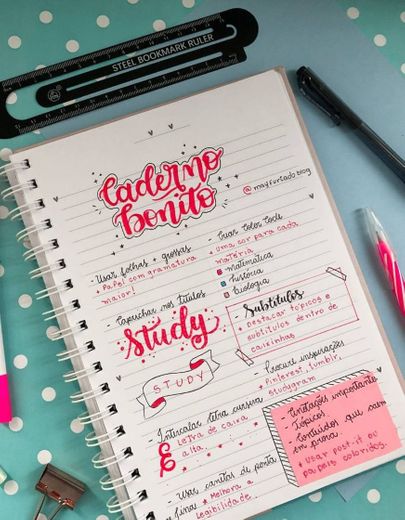 STEEL BOOKMARK RULER
Caderno
bonito
@mayfurtado.blog
- Usar folhas + grossas
* Papel com gramatura
maior!
- Criar Color Code
* uma cor para cada
matéria
matemática
história
biologia
- Caprichar nos títulos
Study
STUDY
Subtítulos
* Destacar tópicos e
subtítulos dentro de
caixinhas
- Procure inspirações
* Pinterest, tumblr,
studygram
- Intercalar letra cursiva
e
* Letra de caixa
alta.
- Usar canetas de ponta
fina!
* Melhora a
legibilidade
- Anotações importantes
- Tópicos
- Conteúdos que caem
em prova.
* Usar post-it ou
papéis coloridos.